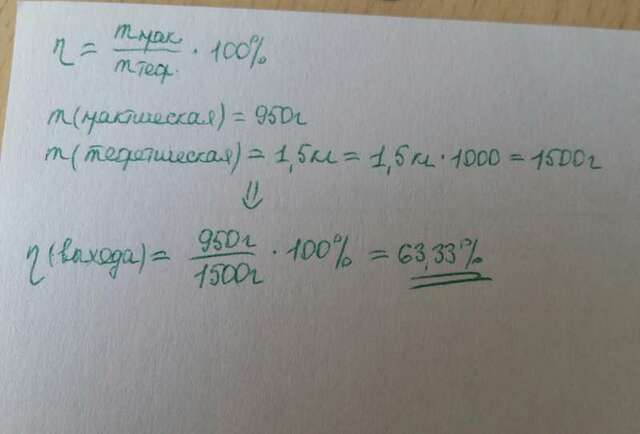 η = mпрак. / mтеор. · 100%
m(практическая) = 950г
m(теоретическая) = 1,5кг = 1,5кг · 1000 = 1500г
⇓
η(выхода) = 950г / 1500г · 100% = 63,33%